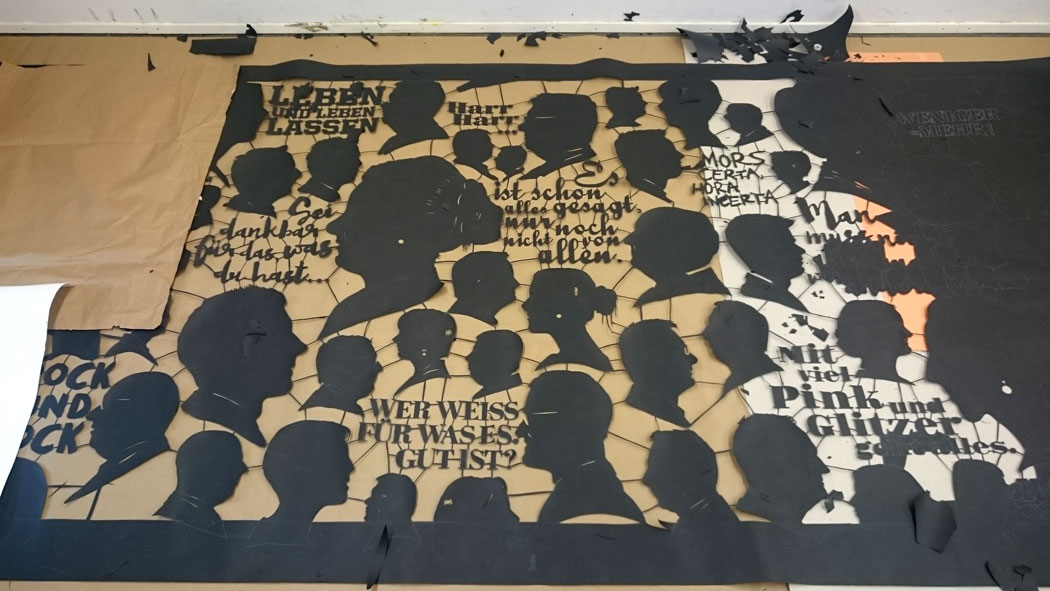 LEBEN
UND LEBEN
LASSEN
Harr
Harr...
WENIGER
=MEHR!
MORS
CERTA,
HORA
INCERTA
Es
ist schon
alles gesagt,
nur noch
nicht von
allen.
Sei
dankbar
für das, was
du hast...
Man
muss
OCK
UND
OCK
WER WEISS
FÜR WAS ES
GUT IST?
Mit
viel
Pink und
Glitzer
geht alles.